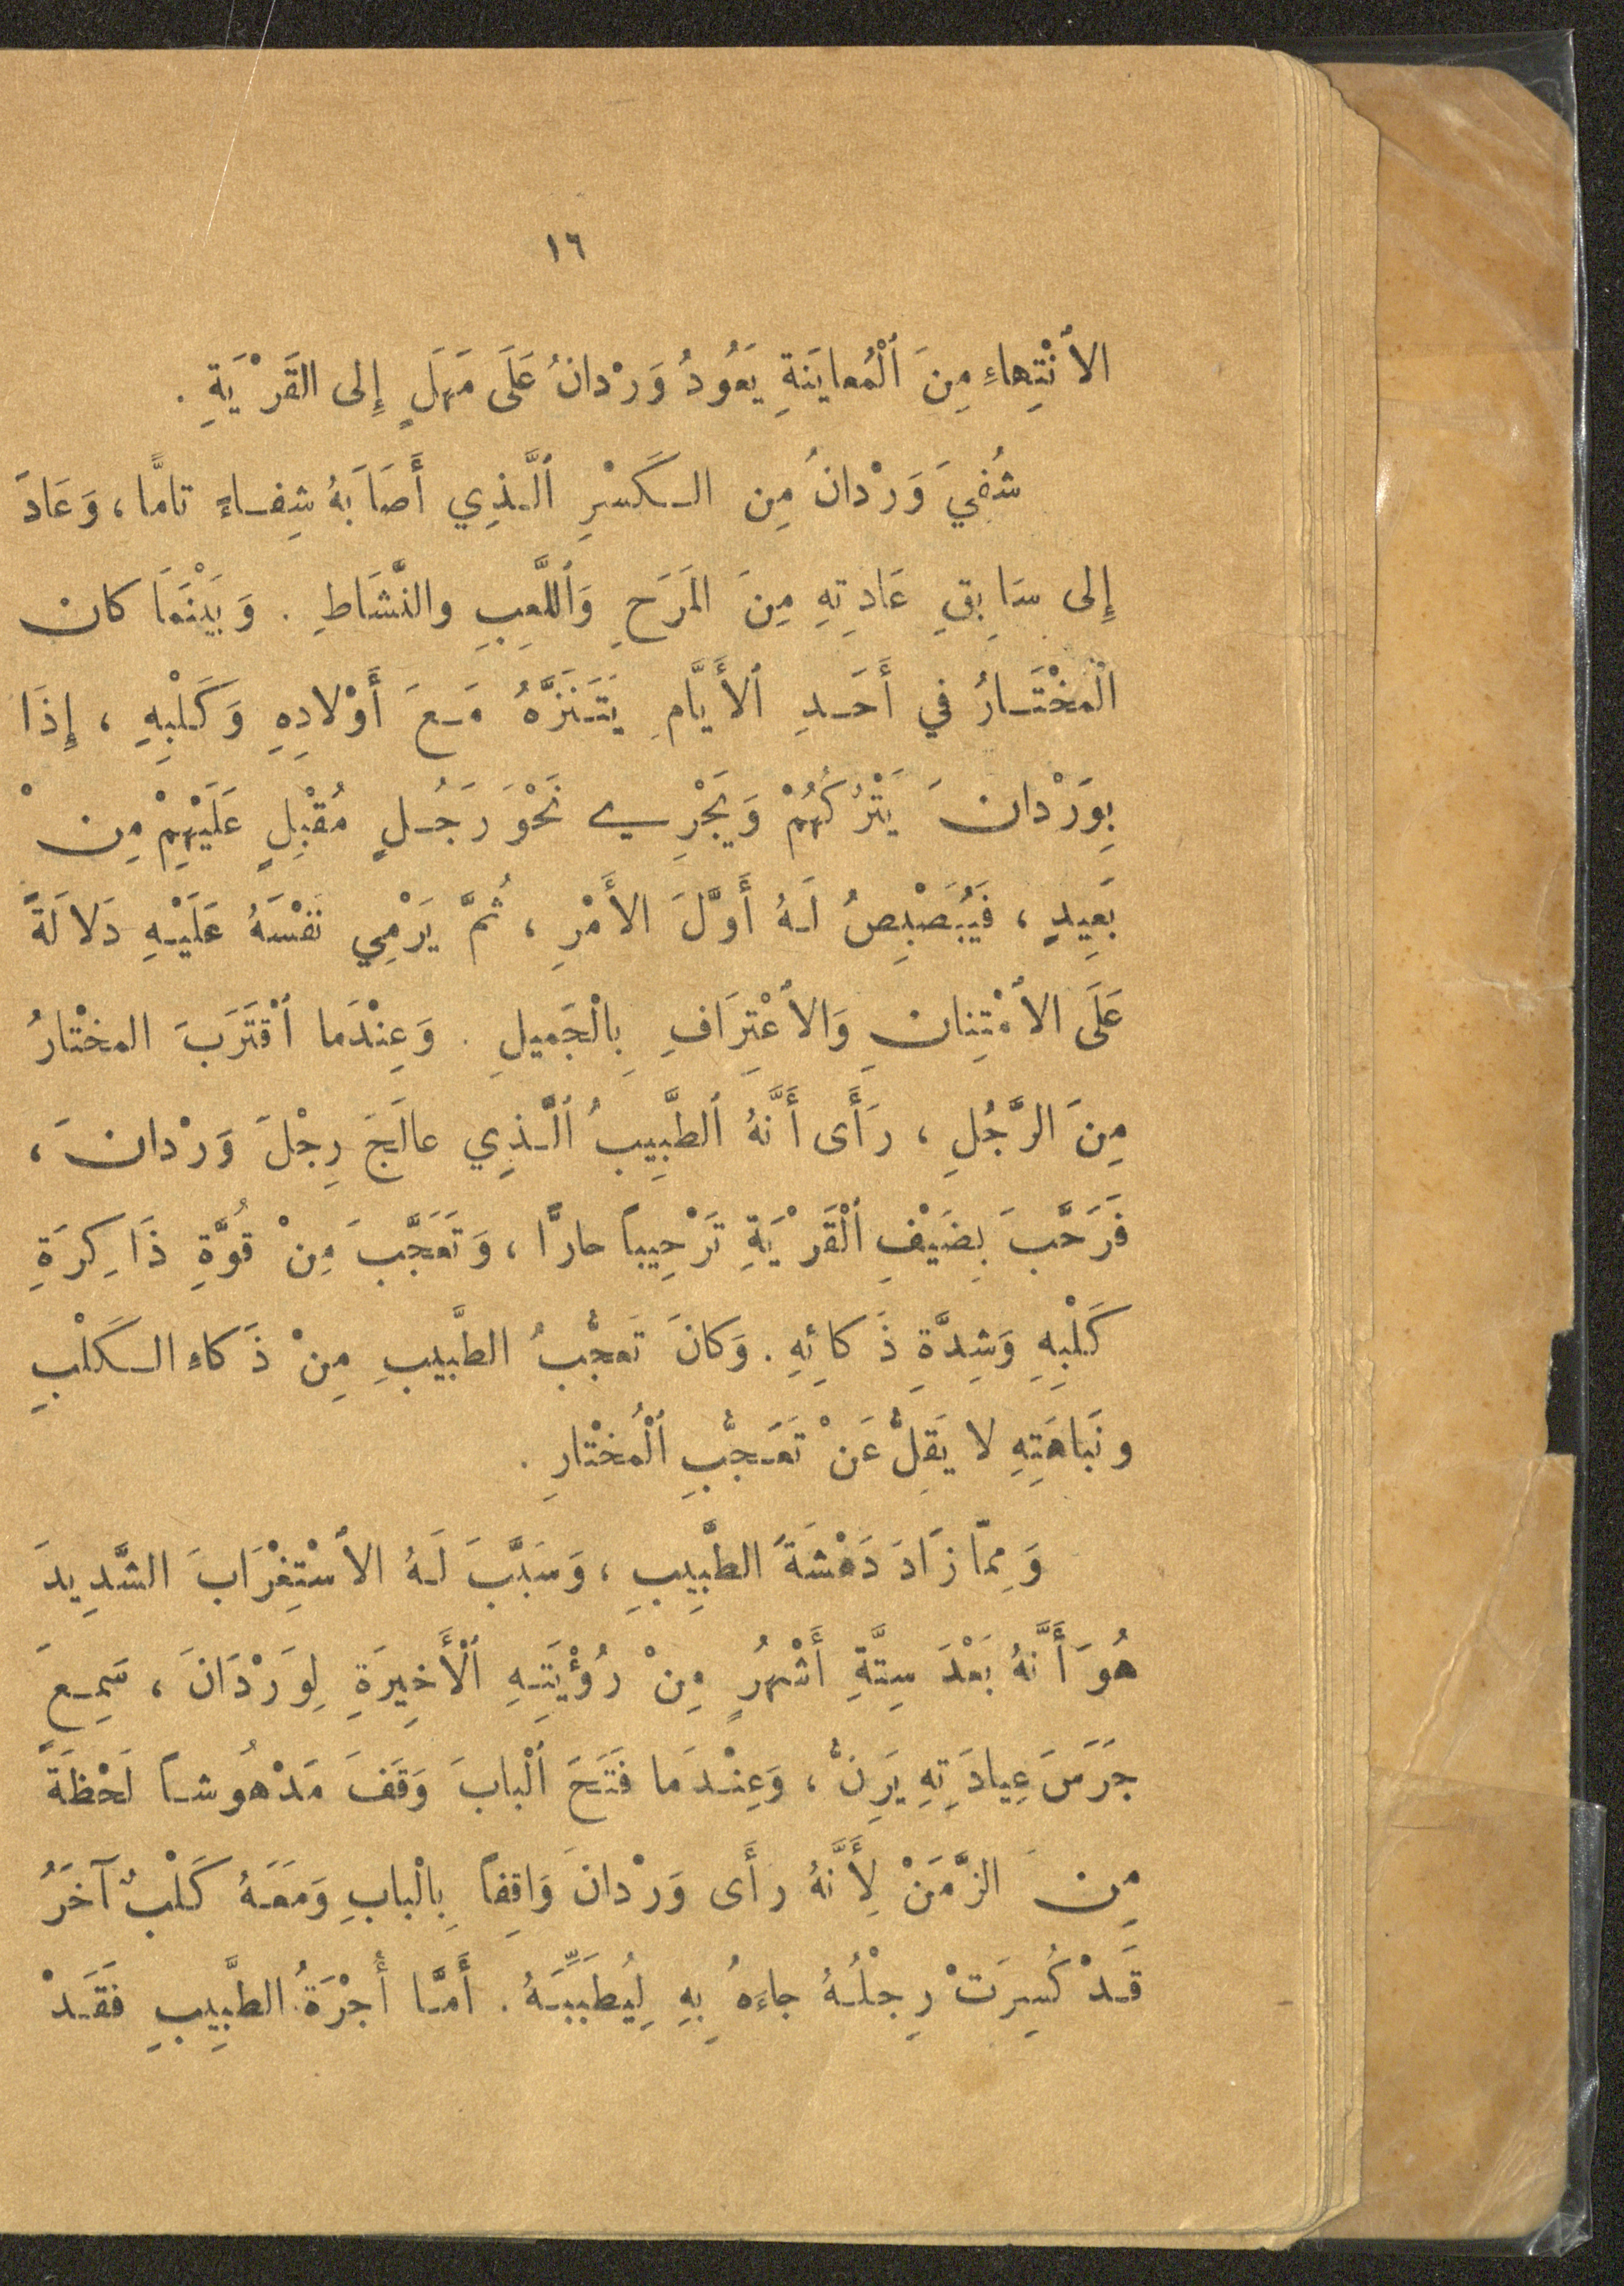 ١٦
الأنْتِهاءِ مِنَ ٱلْمُعايَنَةِ يَعُودُ وَرْدانُ عَلَى مَهَلٍ إِلى القَرْيَةِ .
شُفِيَ وَرْدانُ مِن الكَسْرِ ٱلَّذِي أَصَابَهُ شِفاءً تامًّا ، وَعَادَ
إِلى سَابِقِ عَادِتِهِ مِنَ المَرَحِ وَٱللَّعِبِ والنَّشَاطِ . وَبَيْنَمَا كان
الْمخْتَارُ في أَحَدِ ٱلأَيَّامِ يَتَنَزَّهُ مَعَ أَوْلادِهِ وَكَلْبِهِ ، إِذَا
بِوَرْدانَ يَتْرُكُهُمْ وَيَجْرِي نَحْوَ رَجُلٍ مُقْبِلٍ عَلَيْهِمْ مِنْ
بَعِيدٍ ، فَيُبَصْبِصُ لَهُ أَوَّلَ الأَمْرِ ، ثُمَّ يَرْمِي نَفْسَهُ عَلَيْهِ دَلالَةً
عَلَى الأمْتِنانِ وَالأعْتِرَافِ بِالْجَميلِ . وَعِنْدَما ٱقْتَرَبَ المخْتارُ
مِنَ الرَّجُلِ ، رَأَى أَنَّهُ ٱلطَّبِيبُ ٱلَّذِي عالَجَ رِجْلَ وَرْدانَ ،
فَرَحَّبَ بِضَيْفِ ٱلْقَرْيَةِ تَرْحِيباً حارًّا ، وَتَعَجَّبَ مِنْ قُوَّةِ ذَاكِرَةِ
كَلْبِهِ وَشِدَّةِ ذَكائِهِ . وَكانَ تَعجُّبُ الطَّبيبِ مِنْ ذَكاءِ الكَلْبِ
ونَبَاهَتِهِ لا يَقِلُّ عَنْ تَعَجُّبِ ٱلْمُخْتارِ .
وَمِمّا زَادَ دَهْشَةَ الطَّبِيبِ ، وَسَبَّبَ لَهُ الأسْتِغْرَابَ الشَّدِيدَ
هُوَ أَنَّهُ بَعْدَ سِتَّةِ أَشْهُرٍ مِنْ رُؤْيَتِهِ ٱلْأَخِيرَةِ لِوَرْدَانَ ، سَمِعَ
جَرَسَ عِيادَتِهِ يَرِنُّ ، وَعِنْدَما فَتَحَ ٱلْبابَ وَقَفَ مَدْهُوشاً لَحْظَةً
مِنَ الزَّمَنْ لِأَنَّهُ رأَى وَرْدانَ وَاقِفاً بِالْبابِ وَمَعَهُ كَلْبٌ آخَرُ
قَدْ كُسِرَتْ رِجْلُهُ جاءَهُ بِهِ لِيُطَبِّبَهُ . أَمَّا أُجْرَةُ الطَّبِيبِ فَقَدْ